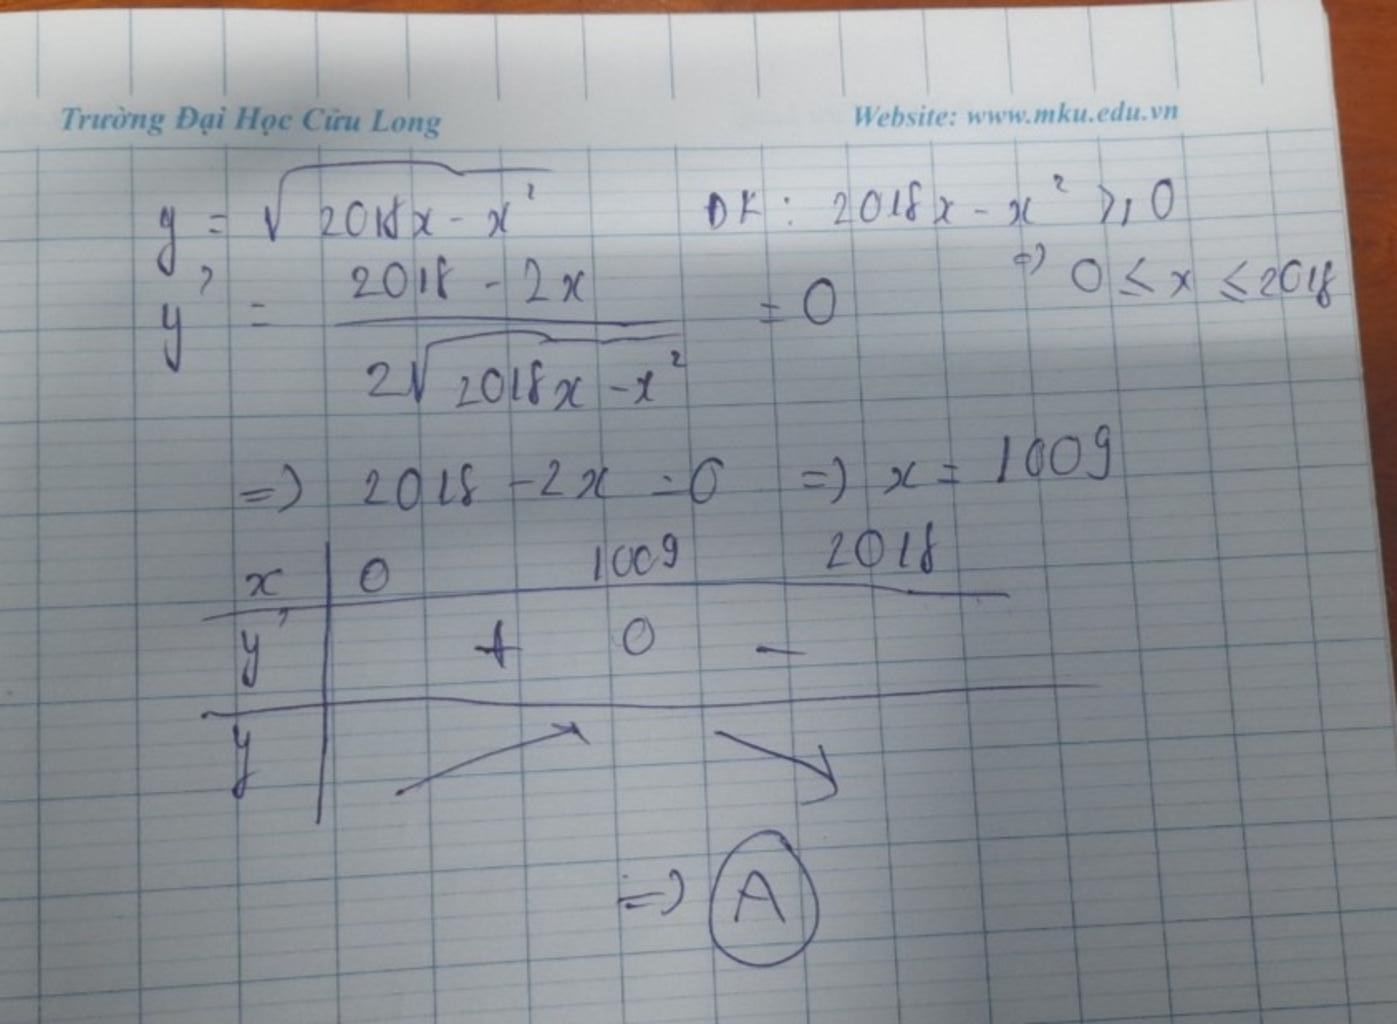 Trường Đại Học Cửu Long Website: www.mku.edu.vn
y = √(2018x - x²) DK: 2018x - x² ≥ 0
=> 0 ≤ x ≤ 2018
y' = (2018 - 2x) / (2√(2018x - x²)) = 0
=> 2018 - 2x = 0 => x = 1009
x 0 1009 2018
y' + 0 -
y
=> A